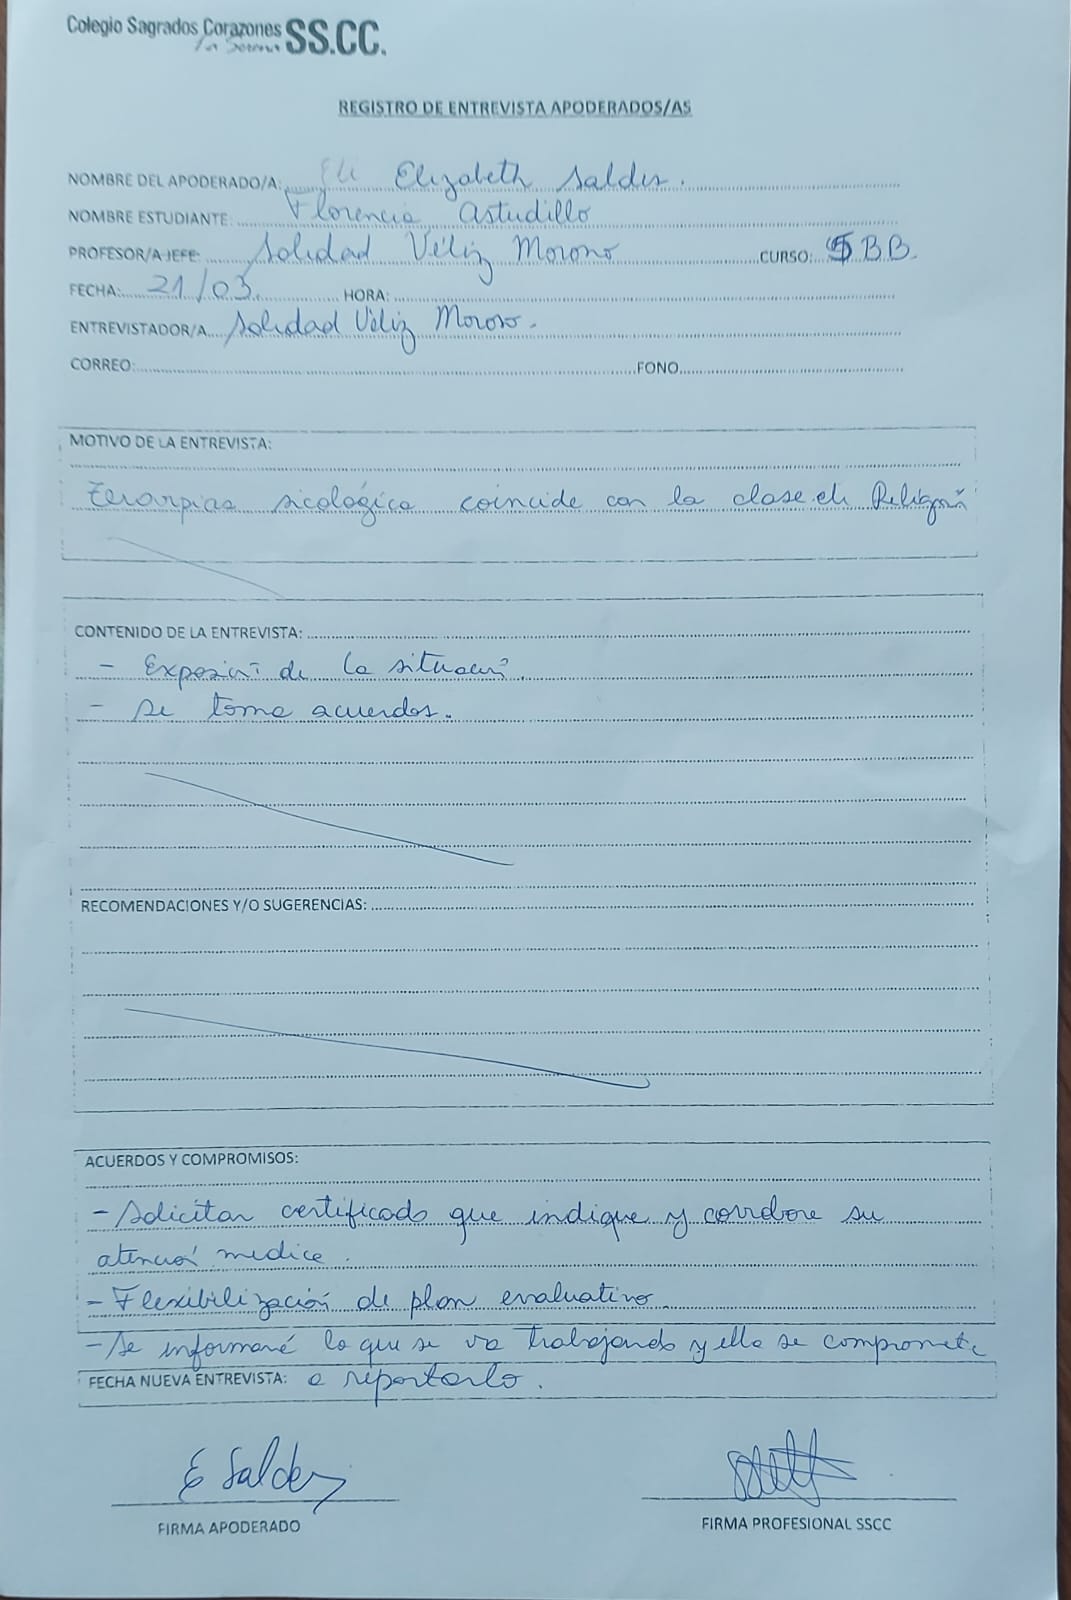 Colegio Sagrados Corazones SS.CC.
La Serena
REGISTRO DE ENTREVISTA APODERADOS/AS
NOMBRE DEL APODERADO/A: Eli Elizabeth Salder.
NOMBRE ESTUDIANTE: Florencia Astudillo
PROFESOR/A JEFE: Soledad Véliz Moroso CURSO: 5 BB.
FECHA: 21/03. HORA:
ENTREVISTADOR/A Soledad Véliz Moroso.
CORREO: FONO
MOTIVO DE LA ENTREVISTA:
Terarpias sicológica coincide con la clase de Religión
CONTENIDO DE LA ENTREVISTA:
- Exposición de la situación.
- Se toma acuerdos.
RECOMENDACIONES Y/O SUGERENCIAS:
ACUERDOS Y COMPROMISOS:
- Solicitar certificado que indique y corrobore su
atención medica.
- Flexibilización de plan evaluativo
- Se informará lo que se va trabajando y ella se compromete
FECHA NUEVA ENTREVISTA: a reportarlo.
E Salder
FIRMA APODERADO
FIRMA PROFESIONAL SSCC